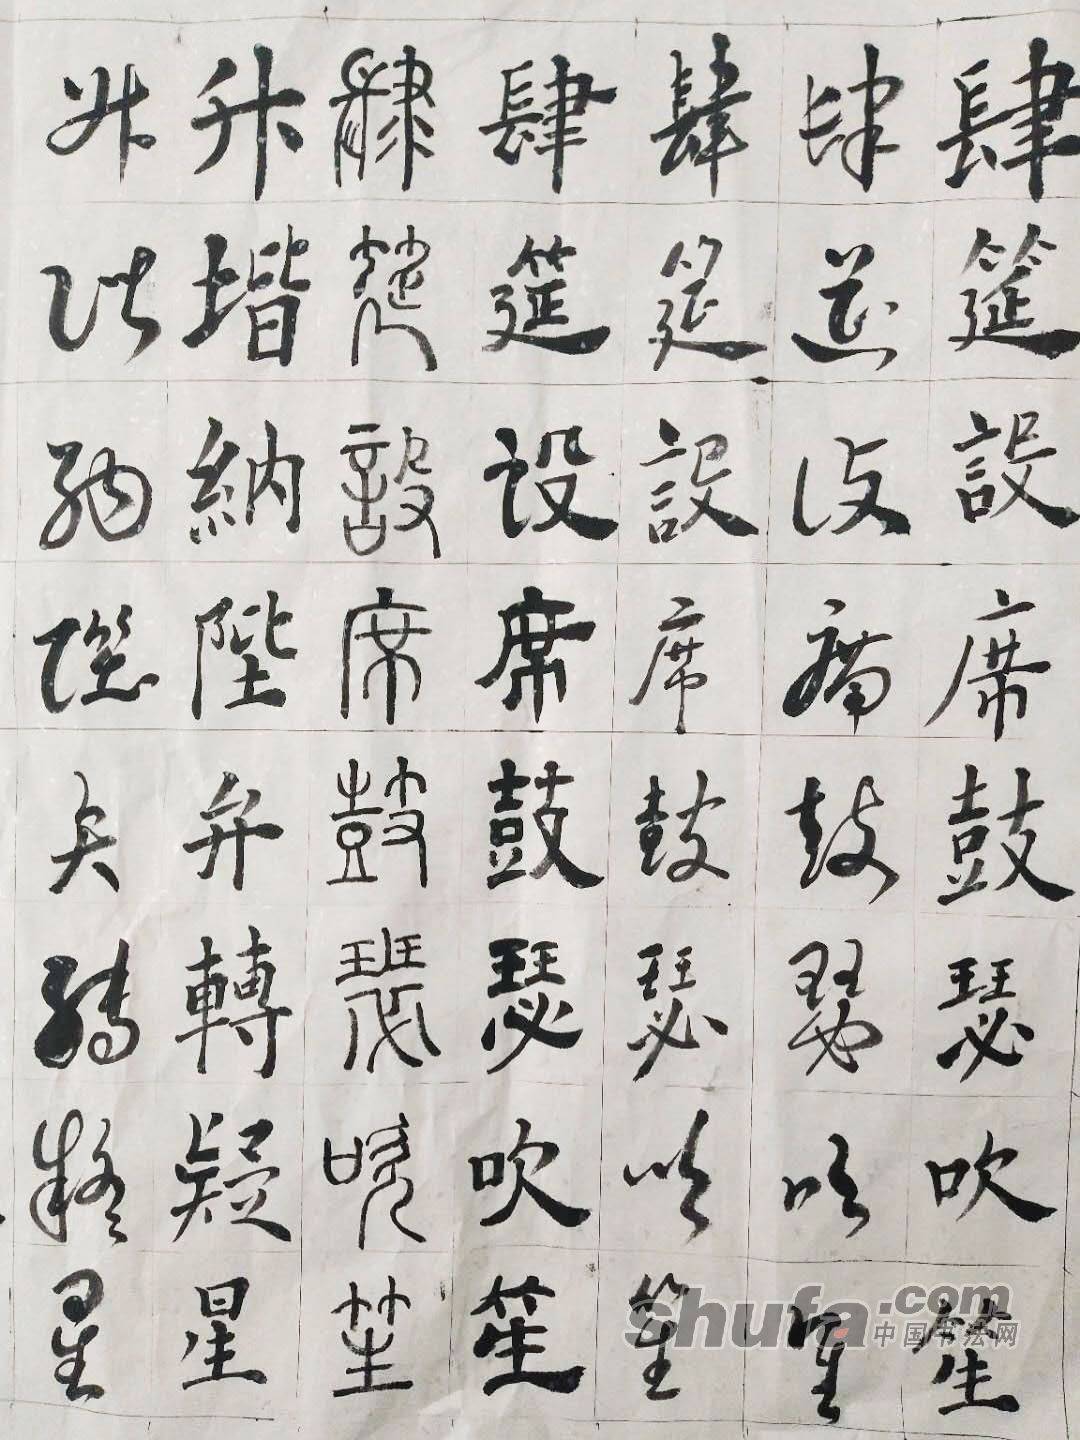 肆筵設席鼓瑟吹笙
肆筵設席鼓瑟吹笙
肆筵設席鼓瑟吹笙
肆筵设席鼓瑟吹笙
肆筵設席鼓瑟吹笙
升堦納陛弁轉疑星
升階納陛弁轉疑星
shufa.com
中国书法网